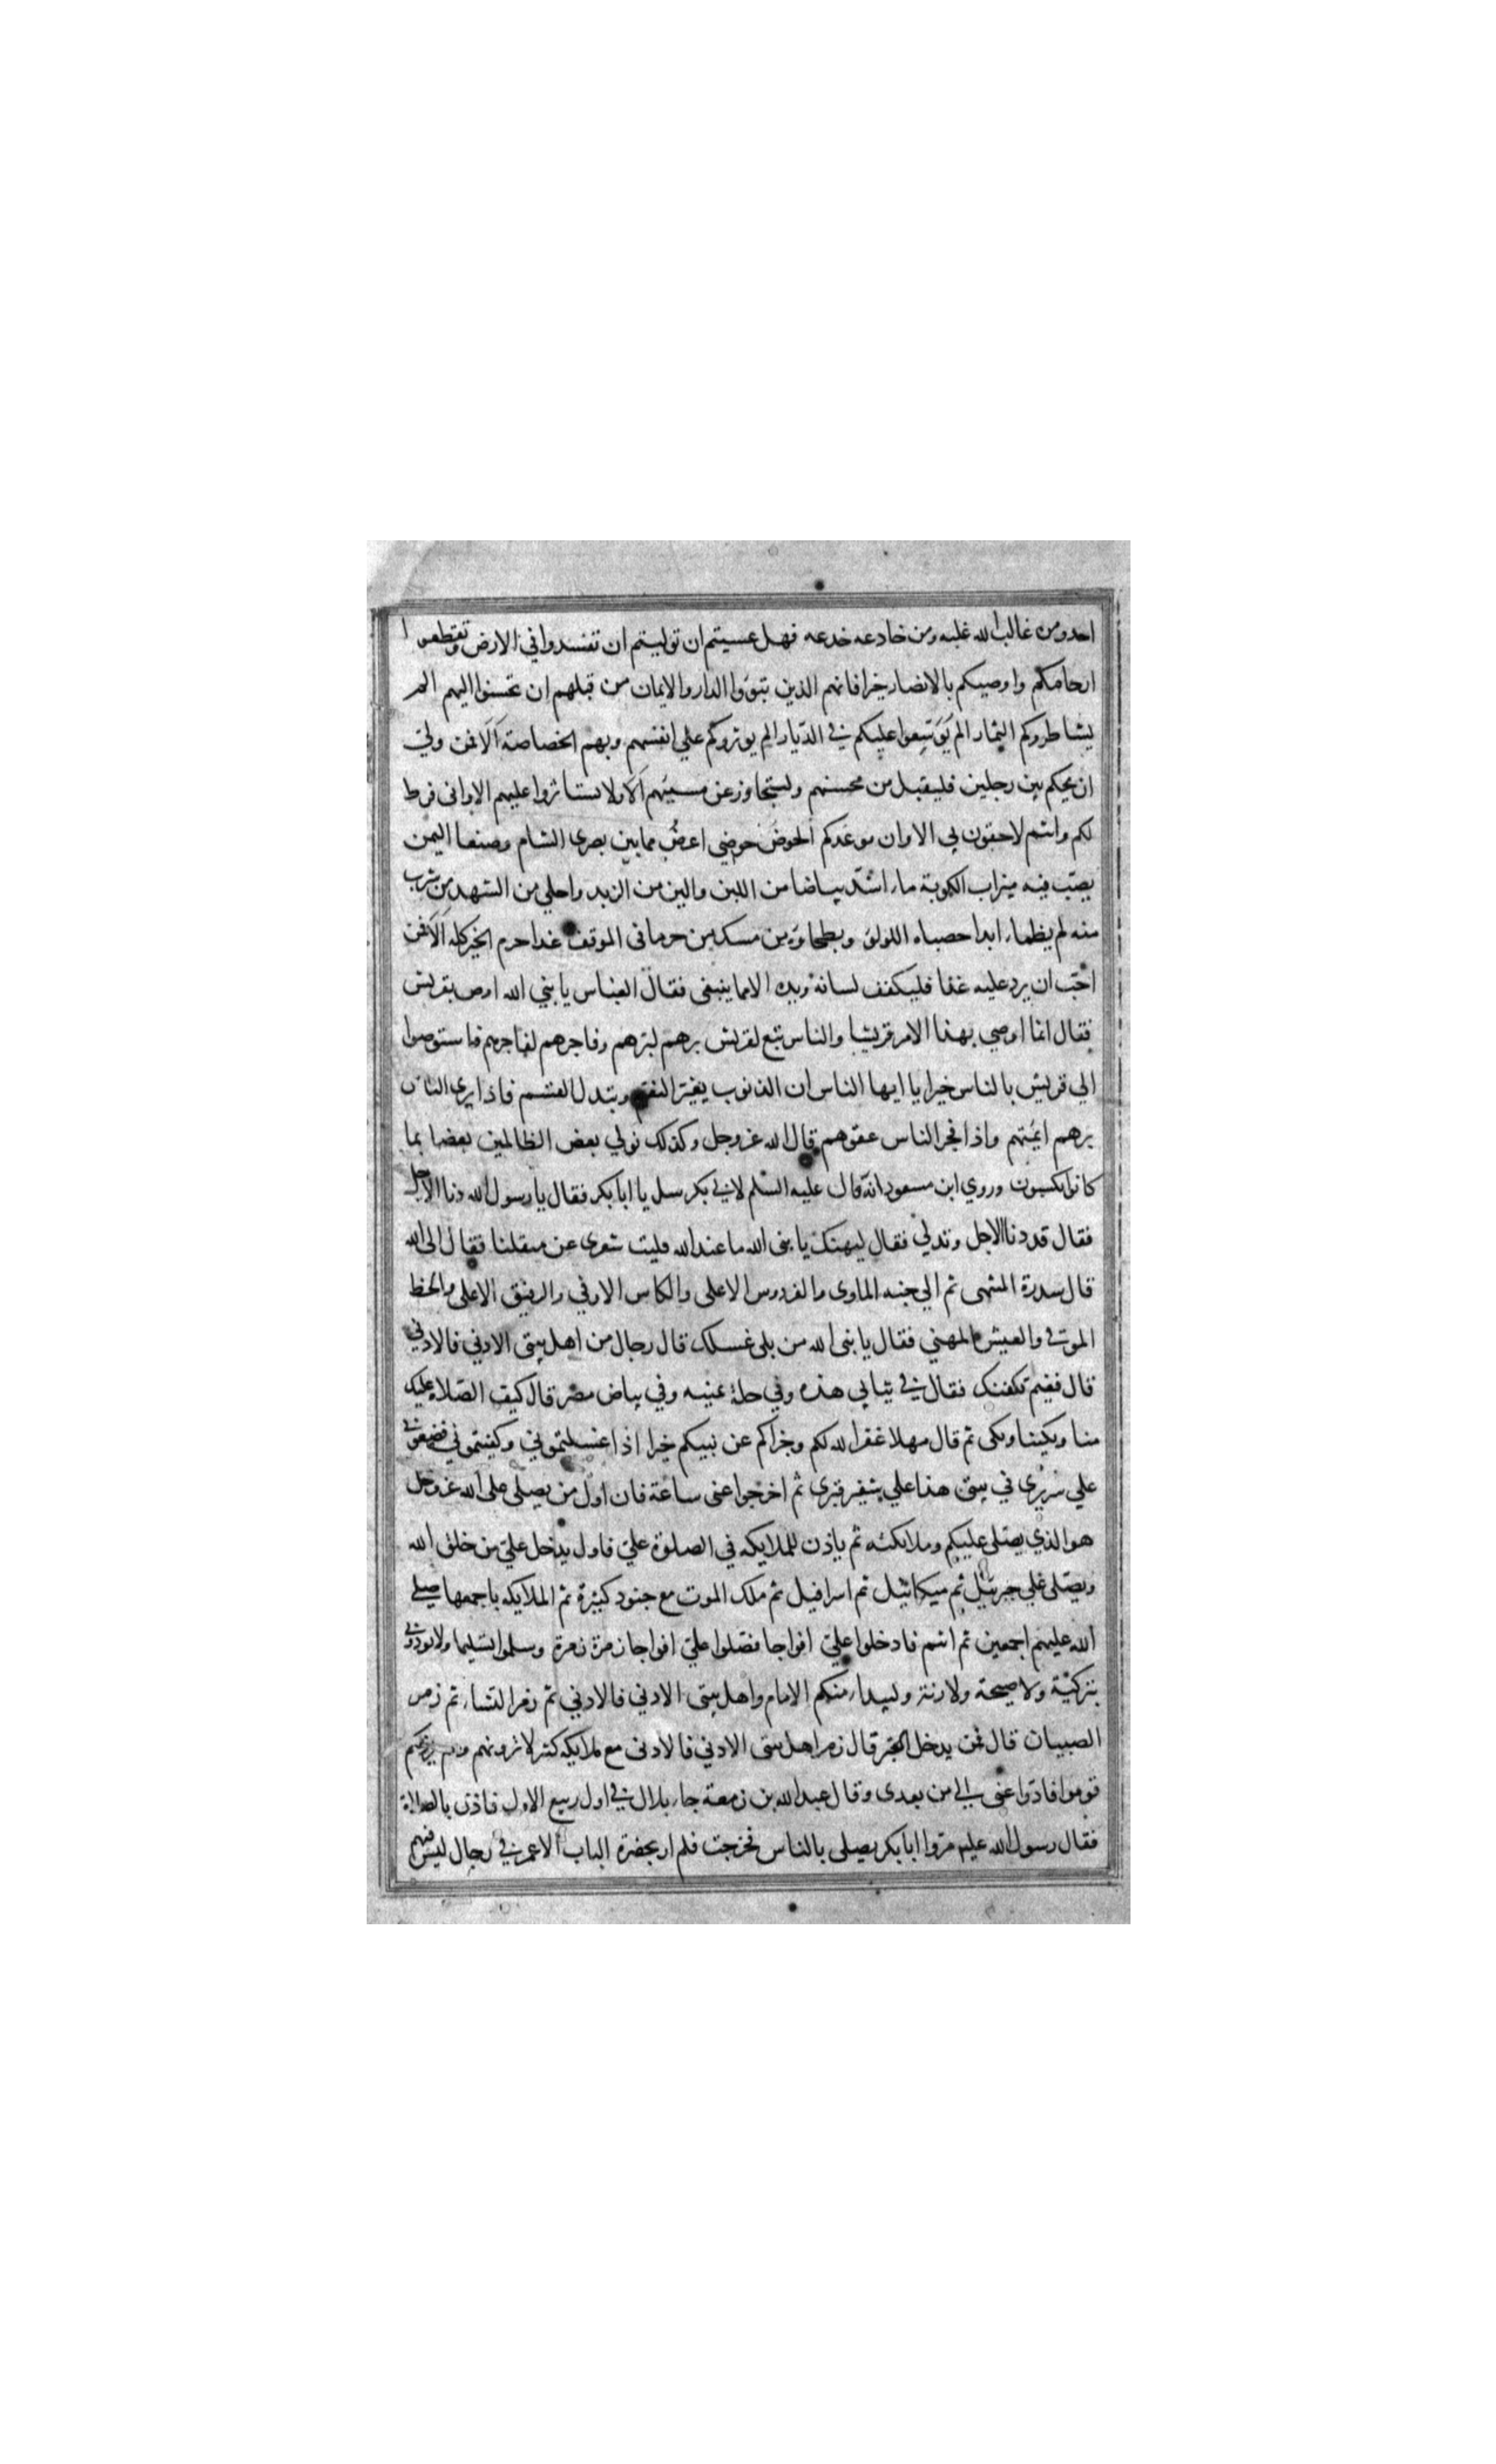 احد ومن غالب الله غلبه ومن خادعه خدعه فهل عسيتم ان توليتم ان تفسدوا في الارض وتقطعوا
ارحامكم واوصيكم بالانصار خيرا فانهم الذين تبوّوا الدار والايمان من قبلهم ان تحسنوا اليهم الم
يشاطروكم الثمار الم يوسّعوا عليكم في الدّيار الم يوثروكم علي انفسهم وبهم الخصاصة الا فمن ولي
ان يحكم بين رجلين فليقبل من محسنهم وليتجاوز عن مسيئهم الا ولا تستاثروا عليهم الا واني فرط
لكم وانتم لاحقون بي الا وان موعدكم الحوض حوضي اعرض مما بين بصرى الشام وصنعا اليمن
يصبّ فيه ميزاب الكوثر ماء اشدّ بياضا من اللبن والين من الزبد واحلي من الشهد من شرب
منه لم يظماء ابدا حصباه اللولؤ وبطحاوه من مسك من حرمه في الموقف غدا حرم الخير كله الا فمن
احبّ ان يرد عليه غدا فليكفف لسانه ويده الا مما ينبغى فقال العبّاس يا نبي الله اوص بقريش
فقال انما اوصي بهذا الامر قريشا والناس تبع لقريش برهم لبرّهم وفاجرهم لفاجرهم فاستوصوا
الي قريش بالناس خيرا يا ايها الناس ان الذنوب يغيّر النعم وتبدل القسم فاذا برى الناس
برهم ايمتهم واذا فجر الناس عقوهم قال الله عز وجل وكذلك نولي بعض الظالمين بعضا بما
كانوا يكسبون وروي ابن مسعود انّه قال عليه السلم لابي بكر سل يا ابا بكر فقال يا رسول الله دنا الاجل
فقال قد دنا الاجل وتدلي فقال ليهنك يا نبى الله ما عند الله فليت شعرى عن منقلبنا فقال الى الله
قال سدرة المنتهى ثم الي جنه الماوى والفردوس الاعلى والكاس الاوفي والرفيق الاعلى والحظ
الموفى والعيش المهني فقال يا نبى الله من يلى غسلك قال رجال من اهل بيتى الادني فالادني
قال ففيم نكفنك فقال في ثيابي هذه وفي حلة يمنيه وفي بياض مصر قال كيف الصّلاة عليك
منا وبكينا وبكى ثم قال مهلا غفر الله لكم وجزاكم عن نبيكم خيرا اذا غسلتموني وكفنتموني فضعوني
علي سريري في بيتى هذا علي شفير قبرى ثم اخرجوا عنى ساعة فان اول من يصلي على الله عز وجل
هو الذي يصلى عليكم وملائكته ثم ياذن للملايكه في الصلوة عليّ فاول يدخل عليّ من خلق الله
ويصّلى علي جبرئيل ثم ميكائيل ثم اسرافيل ثم ملك الموت مع جنود كثيرة ثم الملايكه باجمعها صلى
الله عليهم اجمعين ثم انتم فادخلوا عليّ افواجا فصلوا عليّ افواجا زمرة زمرة وسلموا تسليما ولا توذوني
بتزكية ولا صيحة ولا رنة وليبداء منكم الامام واهل بيتى الادني فالادني ثم زمر النساء ثم زمر
الصبيان قال فمن يدخل القبر قال زمر اهل بيتى الادني فالادنى مع ملايكه كثير لا ترونهم وهم يرونكم
قوموا فادّوا عنى الي من بعدى وقال عبد الله بن زمعة جاء بلال في اول ربيع الاول فاذن بالصلاة
فقال رسول الله عليه مروا ابا بكر يصلى بالناس فخرجت فلم ار بحضرة الباب الا عمر في رجال ليس فيهم